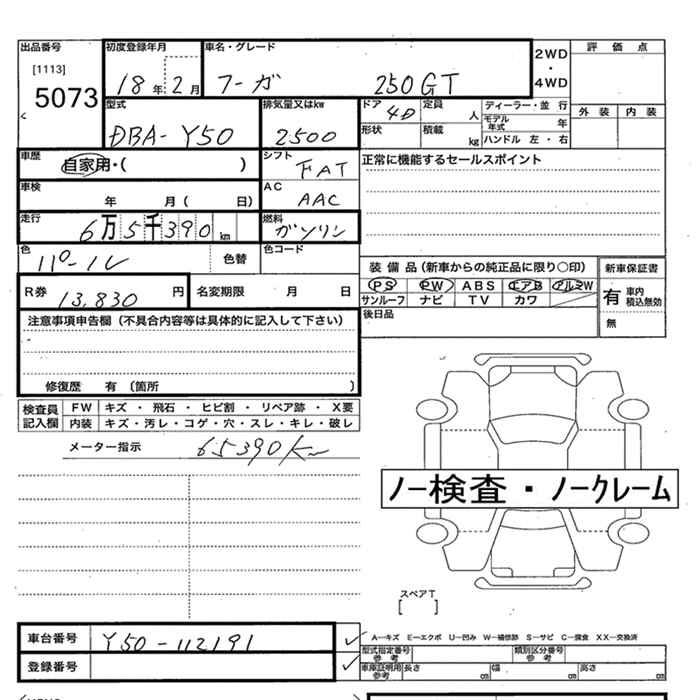 出品番号 初度登録年月 車名・グレード 2WD・4WD 評価点
[1113] 5073 18年2月 フーガ 250GT
型式 排気量又はkw ドア 定員 人 ディーラー・並行 外装 内装
DBA-Y50 2500 4D モデル年式 年
形状 積載 kg ハンドル 左・右
車歴 自家用・( ) シフト FAT 正常に機能するセールスポイント
車検 年 月( 日) AC AAC
走行 6万5千390km 燃料 ガソリン
色 パール 色替 色コード
装備品(新車からの純正品に限り○印) 新車保証書
R券 13,830円 名変期限 月 日 PS PW ABS エアB アルミW 有 車内 積込無効
サンルーフ ナビ TV カワ
後日品 無
注意事項申告欄(不具合内容等は具体的に記入して下さい)
修復歴 有 〔箇所 〕
検査員記入欄 FW キズ・飛石・ヒビ割・リペア跡・X要
内装 キズ・汚レ・コゲ・穴・スレ・キレ・破レ
メーター指示 65390Km
ノー検査・ノークレーム
スペアT
[ ]
車台番号 Y50-112191 A-キズ E-エクボ U-凹み W-補修跡 S-サビ C-腐食 XX-交換済
型式指定番号 参考 類別区分番号 参考
登録番号 車庫証明用 参考 長さ cm 幅 cm 高さ cm